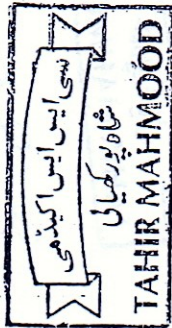 سی ایس ایس اکیڈمی
شاہ پور کمپانی
TAHIR MAHMOOD